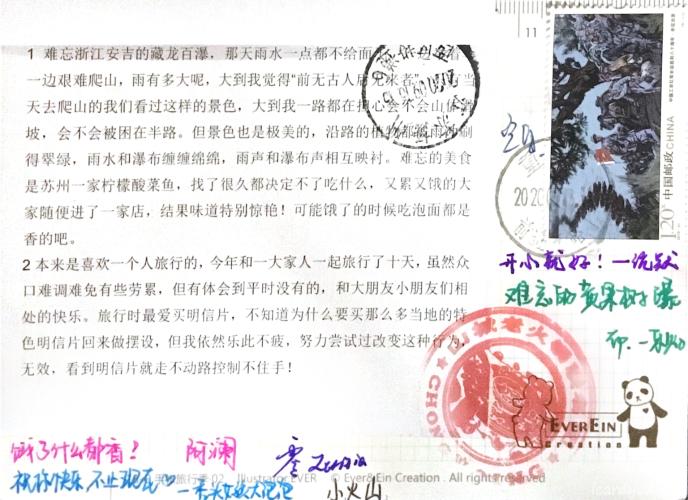 1 难忘浙江安吉的藏龙百瀑，那天雨水一点都不给面
一边艰难爬山，雨有多大呢，大到我觉得“前无古人后 来者”
天去爬山的我们看过这样的景色，大到我一路都在担心会不会山体
坡，会不会被困在半路。但景色也是极美的，沿路的植物都被雨水 刷
得翠绿，雨水和瀑布缠缠绵绵，雨声和瀑布声相互映衬。难忘的美食
是苏州一家柠檬酸菜鱼，找了很久都决定不了吃什么，又累又饿的大
家随便进了一家店，结果味道特别惊艳！可能饿了的时候吃泡面都是
香的吧。
2 本来是喜欢一个人旅行的，今年和一大家人一起旅行了十天，虽然众
口难调难免有些劳累，但有体会到平时没有的，和大朋友小朋友们相
处的快乐。旅行时最爱买明信片，不知道为什么要买那么多当地的特
色明信片回来做摆设，但我依然乐此不疲，努力尝试过改变这种行为，
无效，看到明信片就走不动路控制不住手！
11
120
中国邮政 CHINA
开小龍好！一統
难忘的黄果树瀑
EVEREIN
Creation
饿了什么都香？ 阿澜
祝你快乐 不止现在
旅行季 02 Illustrator EVER © Ever& Ein Creation. All Rights Reserved
小火山